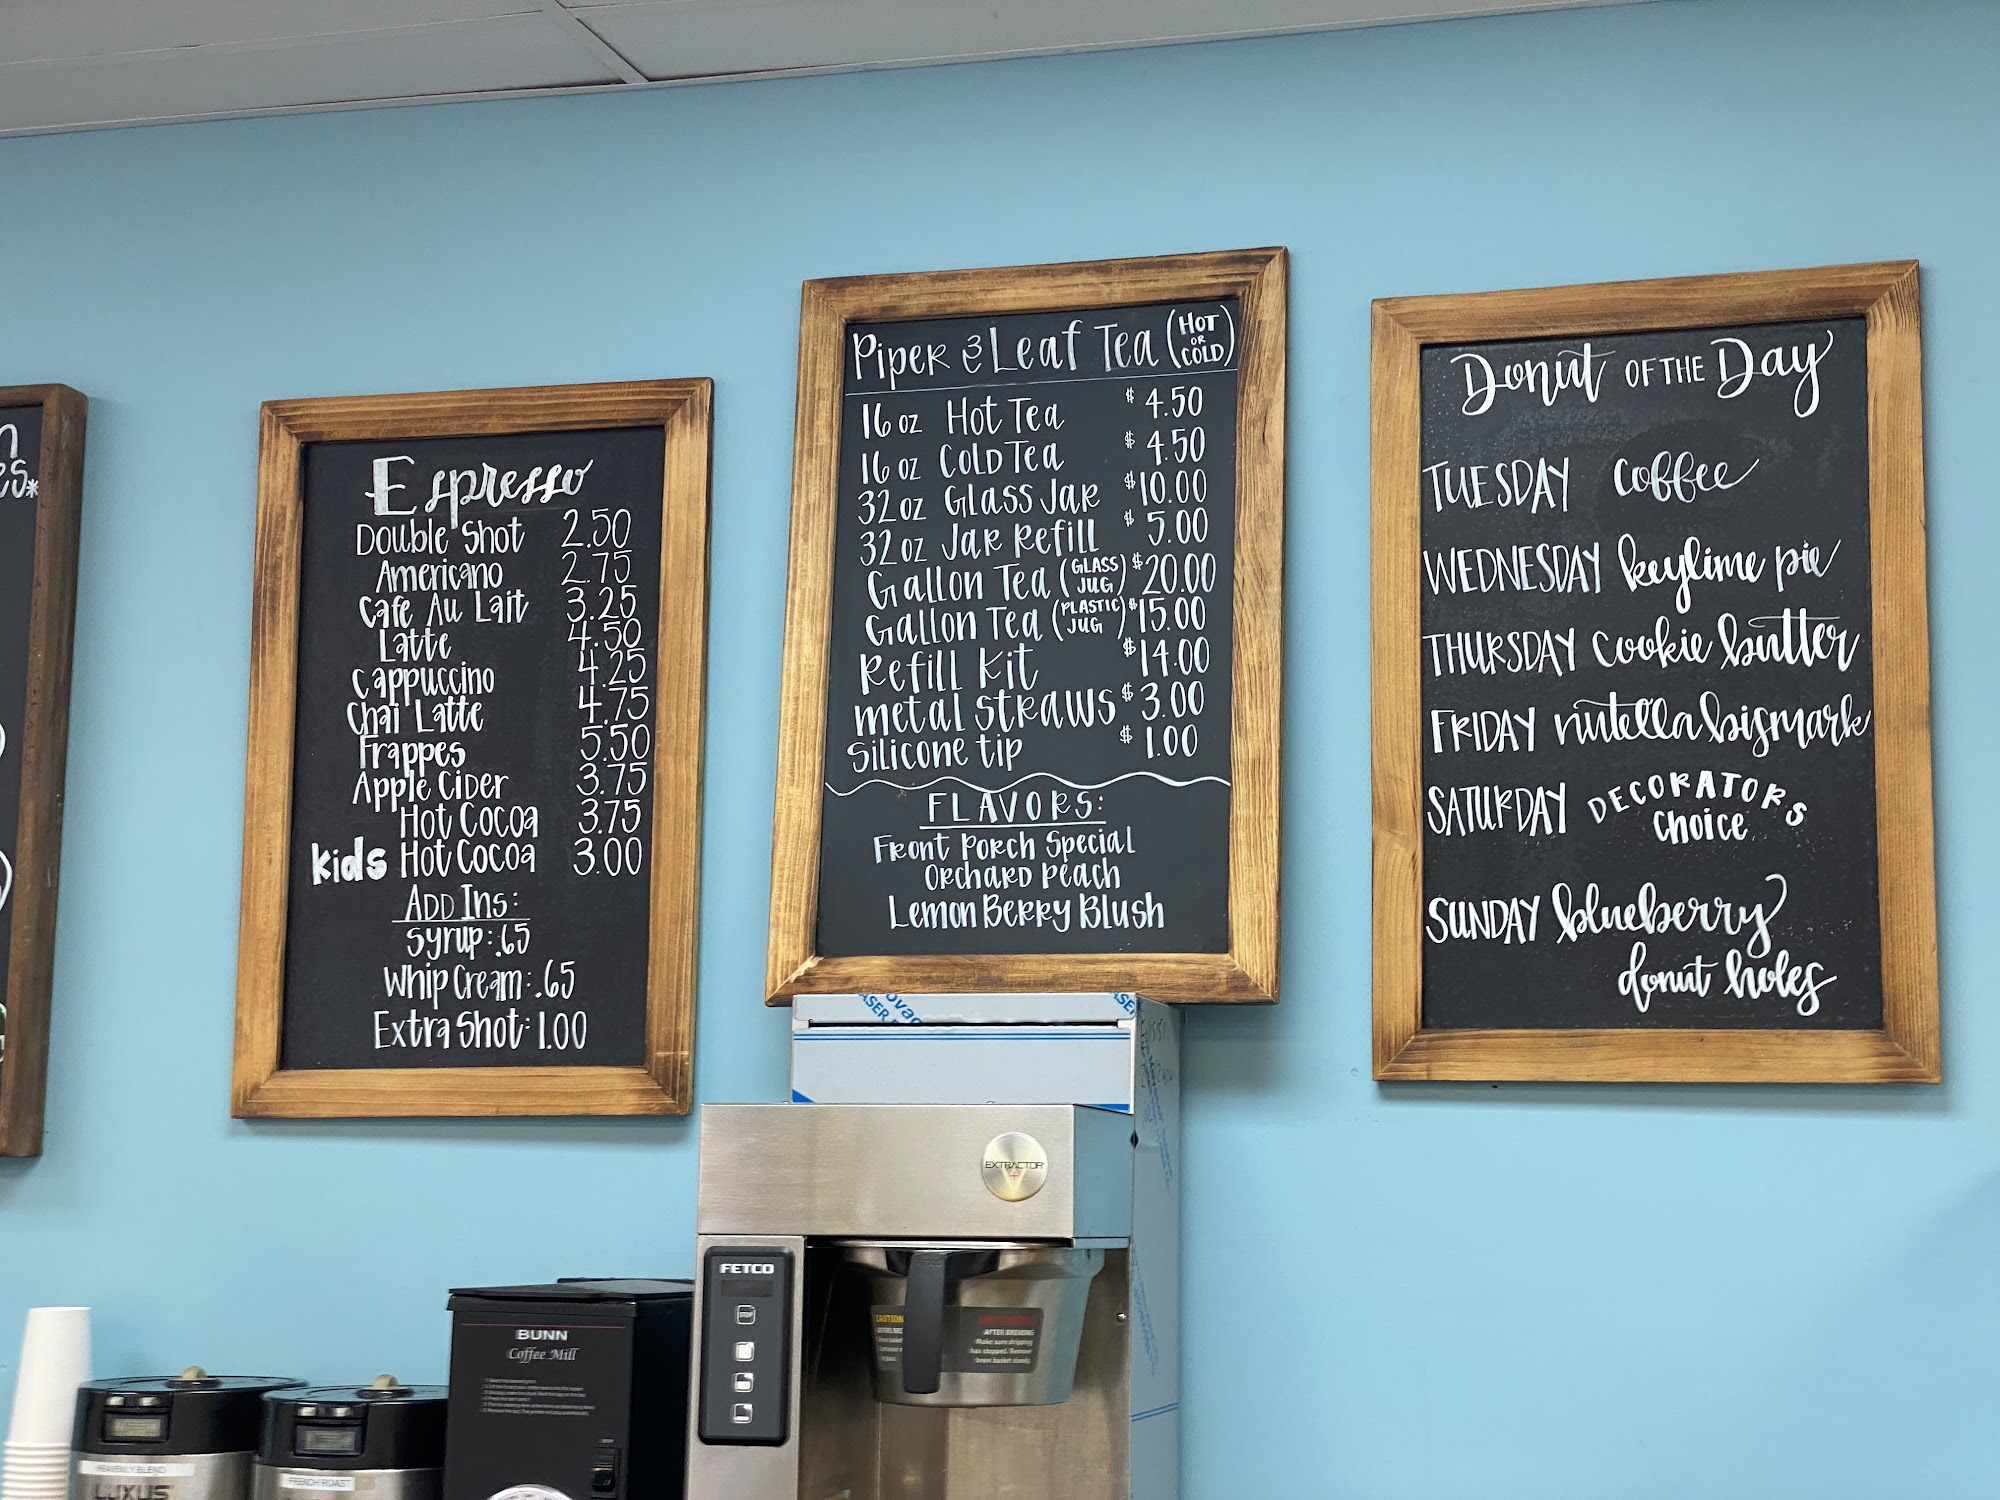 Espresso
Double Shot 2.50
Americano 2.75
Cafe Au Lait 3.25
Latte 4.50
Cappuccino 4.25
Chai Latte 4.75
Frappes 5.50
Apple Cider 3.75
Hot Cocoa 3.75
kids Hot Cocoa 3.00
Add Ins:
Syrup: .65
Whip Cream: .65
Extra Shot: 1.00
Piper & Leaf Tea (HOT OR COLD)
16 oz Hot Tea $4.50
16 oz Cold Tea $4.50
32 oz Glass Jar $10.00
32 oz Jar Refill $5.00
Gallon Tea (GLASS JUG) $20.00
Gallon Tea (PLASTIC JUG) $15.00
Refill Kit $14.00
metal straws $3.00
Silicone tip $1.00
FLAVORS:
Front Porch Special
Orchard Peach
Lemon Berry Blush
Donut OF THE Day
TUESDAY coffee
WEDNESDAY keylime pie
THURSDAY cookie butter
FRIDAY nutella bismark
SATURDAY DECORATORS
choice
SUNDAY blueberry
donut holes
EXTRACTOR
V+
FETCO
STOP
CAUTION
AFTER BREWING
Make sure dripping
has stopped. Remove
brew basket slowly.
BUNN
Coffee Mill
HEAVENLY BLEND
LUXUS
FRENCH ROAST